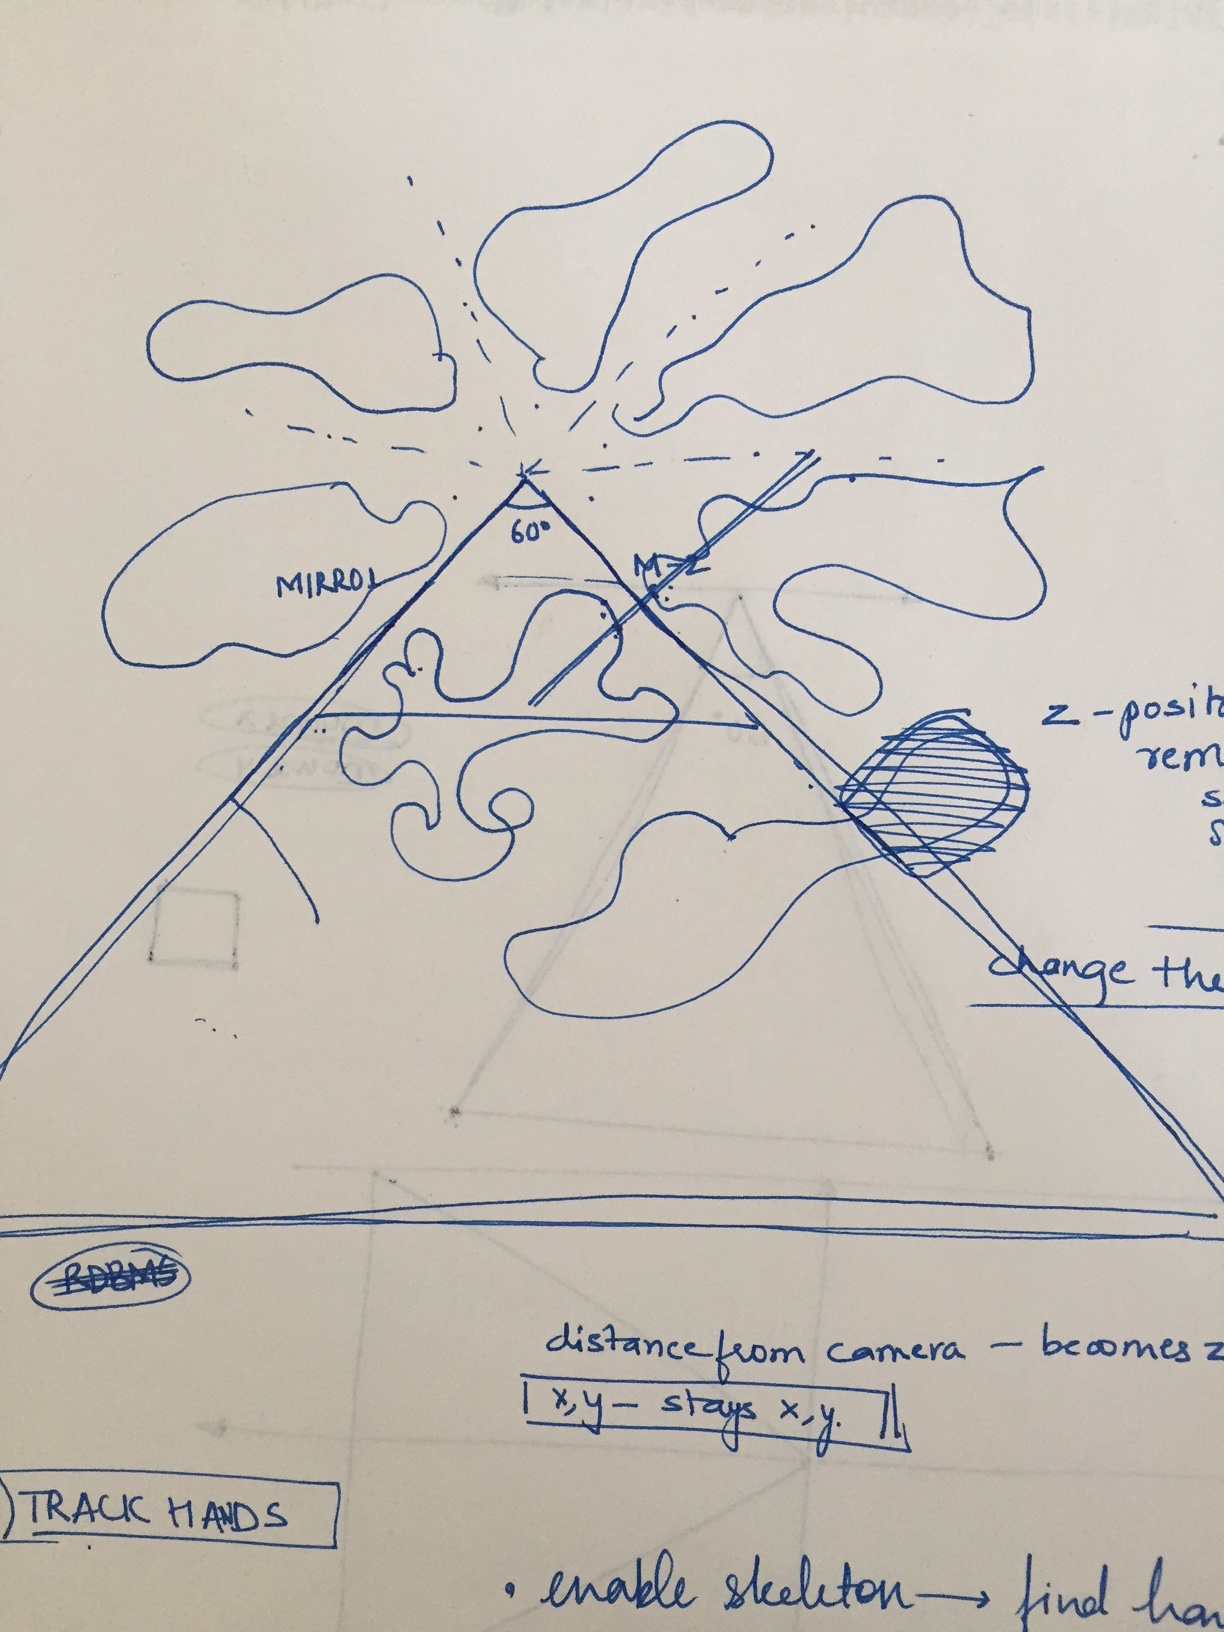 60°
M-Z
MIRROR
z-posit
rem
s
s
change the
RDBMS
distance from camera — becomes z
x,y — stays x,y.
) TRACK HANDS
• enable skeleton → find han